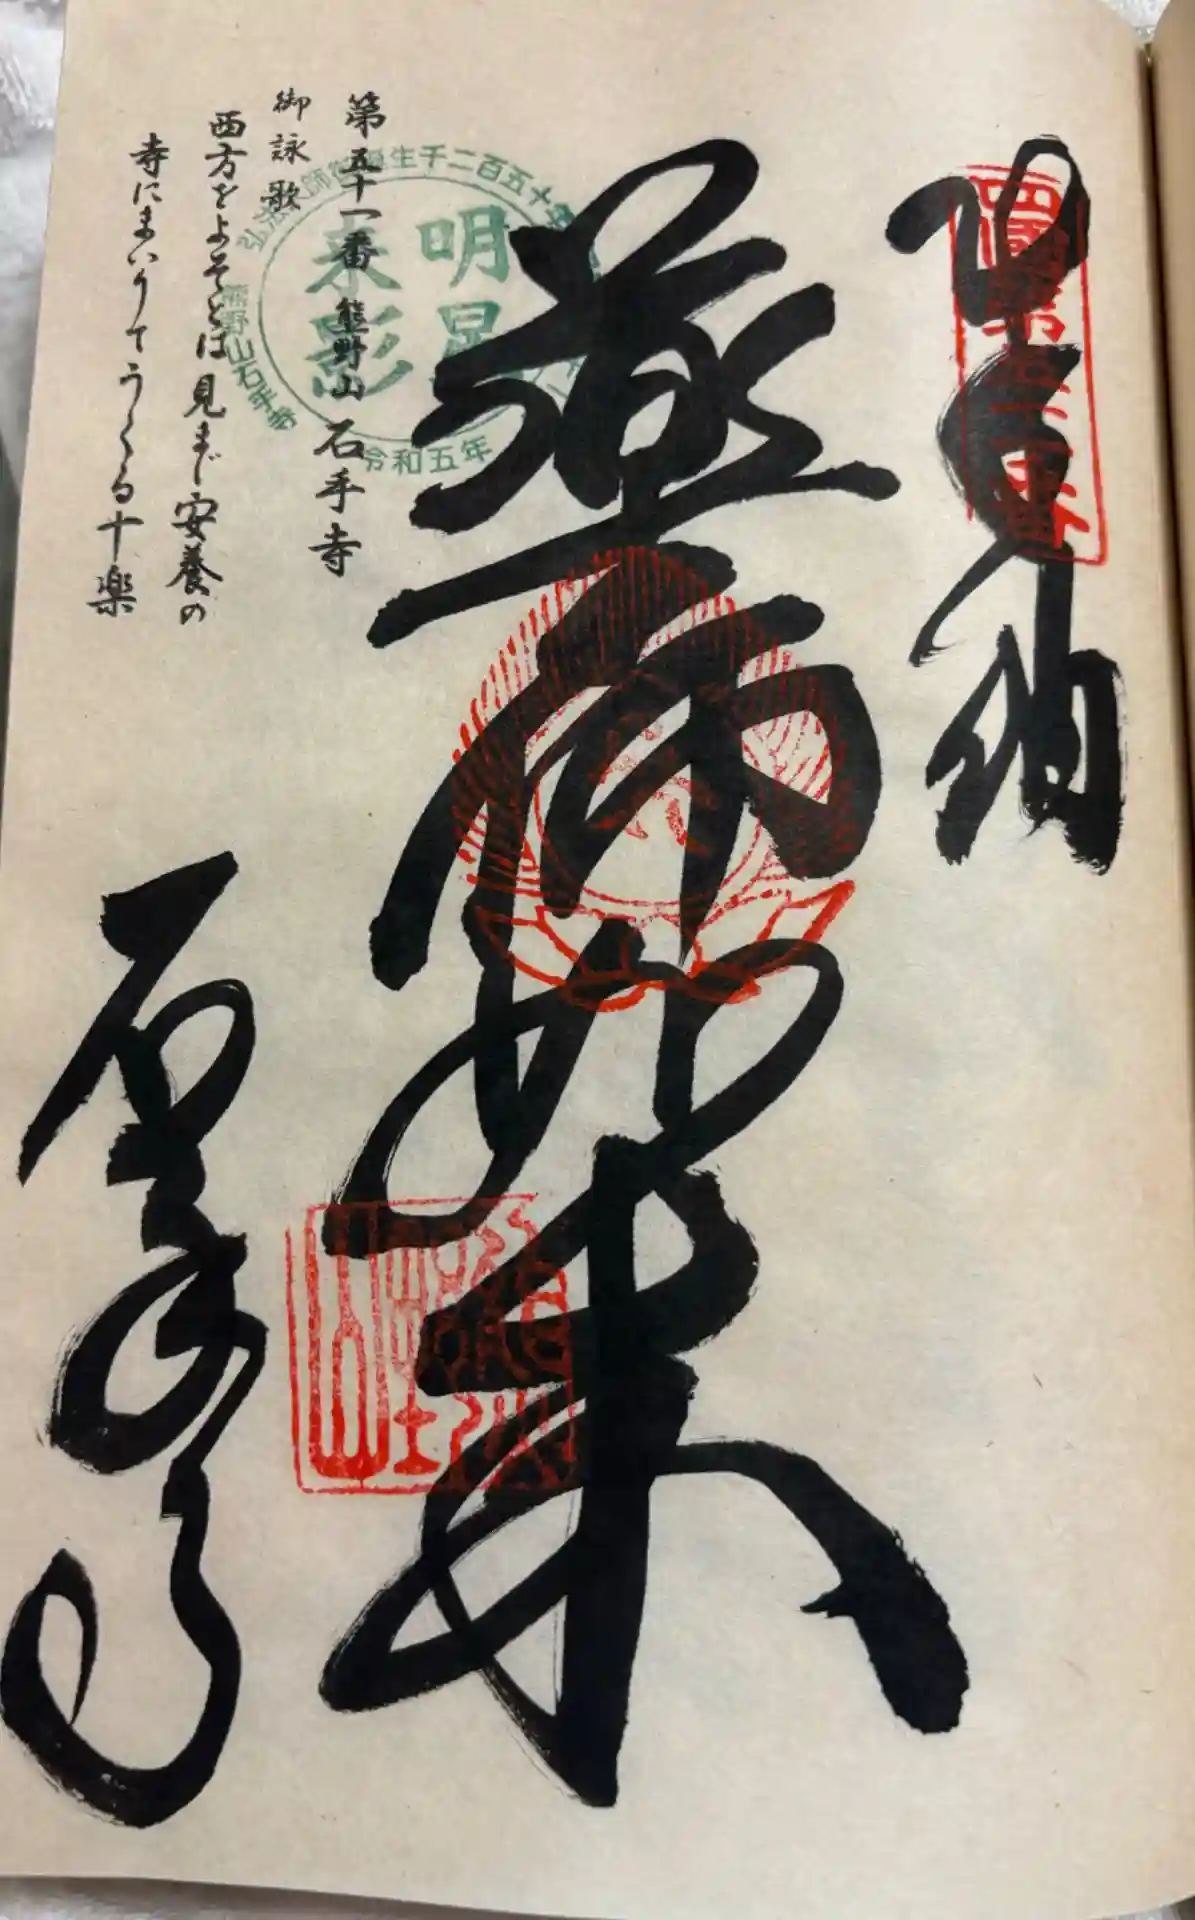 奉納
四國第五十一番
薬師如来
石手寺
第五十一番 熊野山 石手寺
御詠歌
西方をよそとは見まじ安養の
寺にまいりてうくる十楽
生千二百五十年
明星
来影
熊野山石手寺
令和五年